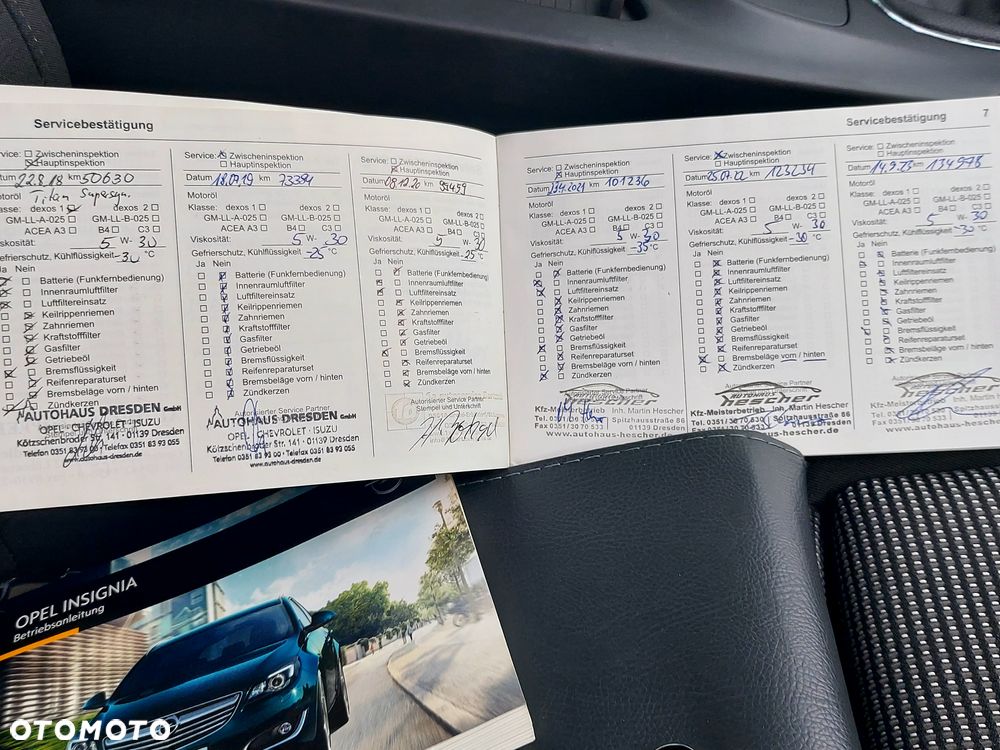 Servicebestätigung
Service: Zwischeninspektion
Hauptinspektion
Datum 22.8.18 km 50630
Motoröl Titan Supersyn
Klasse: dexos 1 dexos 2
GM-LL-A-025 GM-LL-B-025
ACEA A3 B4 C3
Viskosität: 5 W- 30
Gefrierschutz, Kühlflüssigkeit -30 °C
Ja Nein
Batterie (Funkfernbedienung)
Innenraumluftfilter
Luftfiltereinsatz
Keilrippenriemen
Zahnriemen
Kraftstofffilter
Gasfilter
Getriebeöl
Bremsflüssigkeit
Reifenreparaturset
Bremsbeläge vorn / hinten
Zündkerzen
AUTOHAUS DRESDEN GmbH
OPEL · CHEVROLET · ISUZU
Kötzschenbroder Str. 141 · 01139 Dresden
Telefon 0351 83 93 00 · Telefax 0351 83 93 055
www.autohaus-dresden.de
Service: Zwischeninspektion
Hauptinspektion
Datum 18.07.19 km 73394
Motoröl
Klasse: dexos 1 dexos 2
GM-LL-A-025 GM-LL-B-025
ACEA A3 B4 C3
Viskosität: 5 W- 30
Gefrierschutz, Kühlflüssigkeit -25 °C
Ja Nein
Batterie (Funkfernbedienung)
Innenraumluftfilter
Luftfiltereinsatz
Keilrippenriemen
Zahnriemen
Kraftstofffilter
Gasfilter
Getriebeöl
Bremsflüssigkeit
Reifenreparaturset
Bremsbeläge vorn / hinten
Zündkerzen
Autorisierter Service Partner
AUTOHAUS DRESDEN GmbH
OPEL · CHEVROLET · ISUZU
Kötzschenbroder Str. 141 · 01139 Dresden
Telefon 0351 83 93 00 · Telefax 0351 83 93 055
www.autohaus-dresden.de
Service: Zwischeninspektion
Hauptinspektion
Datum 08.12.20 km
Motoröl
Klasse: dexos 1 dexos 2
GM-LL-A-025 GM-LL-B-025
ACEA A3 B4 C3
Viskosität: 5 W- 30
Gefrierschutz, Kühlflüssigkeit -25 °C
Ja Nein
Batterie (Funkfernbedienung)
Innenraumluftfilter
Luftfiltereinsatz
Keilrippenriemen
Zahnriemen
Kraftstofffilter
Gasfilter
Getriebeöl
Bremsflüssigkeit
Reifenreparaturset
Bremsbeläge vorn / hinten
Zündkerzen
Autorisierter Service Partner
Stempel und Unterschrift
Servicebestätigung 7
Service: Zwischeninspektion
Hauptinspektion
Datum 2021 km 101236
Motoröl
Klasse: dexos 1 dexos 2
GM-LL-A-025 GM-LL-B-025
ACEA A3 B4 C3
Viskosität: 5 W- 30
Gefrierschutz, Kühlflüssigkeit -35 °C
Ja Nein
Batterie (Funkfernbedienung)
Innenraumluftfilter
Luftfiltereinsatz
Keilrippenriemen
Zahnriemen
Kraftstofffilter
Gasfilter
Getriebeöl
Bremsflüssigkeit
Reifenreparaturset
Bremsbeläge vorn / hinten
Zündkerzen
AUTOHAUS
Hescher
Kfz-Meisterbetrieb Inh. Martin Hescher
Spitzhausstraße 86
Fax 0351/30 70 533 01139 Dresden
www.autohaus-hescher.de
Service: Zwischeninspektion
Hauptinspektion
Datum 25.07.22 km 123234
Motoröl
Klasse: dexos 1 dexos 2
GM-LL-A-025 GM-LL-B-025
ACEA A3 B4 C3
Viskosität: 5 W- 30
Gefrierschutz, Kühlflüssigkeit -30 °C
Ja Nein
Batterie (Funkfernbedienung)
Innenraumluftfilter
Luftfiltereinsatz
Keilrippenriemen
Zahnriemen
Kraftstofffilter
Gasfilter
Getriebeöl
Bremsflüssigkeit
Reifenreparaturset
Bremsbeläge vorn / hinten
Zündkerzen
AUTOHAUS
Hescher
Kfz-Meisterbetrieb Inh. Martin Hescher
Tel. 0351/30 Spitzhausstraße 86
Fax 0351/30 70 533
www.autohaus-hescher.de
Service: Zwischeninspektion
Hauptinspektion
Datum 14.9.23 km 134978
Motoröl
Klasse: dexos 1 dexos 2
GM-LL-A-025 GM-LL-B-025
ACEA A3 B4 C3
Viskosität: 5 W- 30
Gefrierschutz, Kühlflüssigkeit -30 °C
Ja Nein
Batterie (Funkfernbedienung)
Innenraumluftfilter
Luftfiltereinsatz
Keilrippenriemen
Zahnriemen
Kraftstofffilter
Gasfilter
Getriebeöl
Bremsflüssigkeit
Reifenreparaturset
Bremsbeläge vorn / hinten
Zündkerzen
Hescher
OPEL INSIGNIA
Betriebsanleitung
OTOMOTO